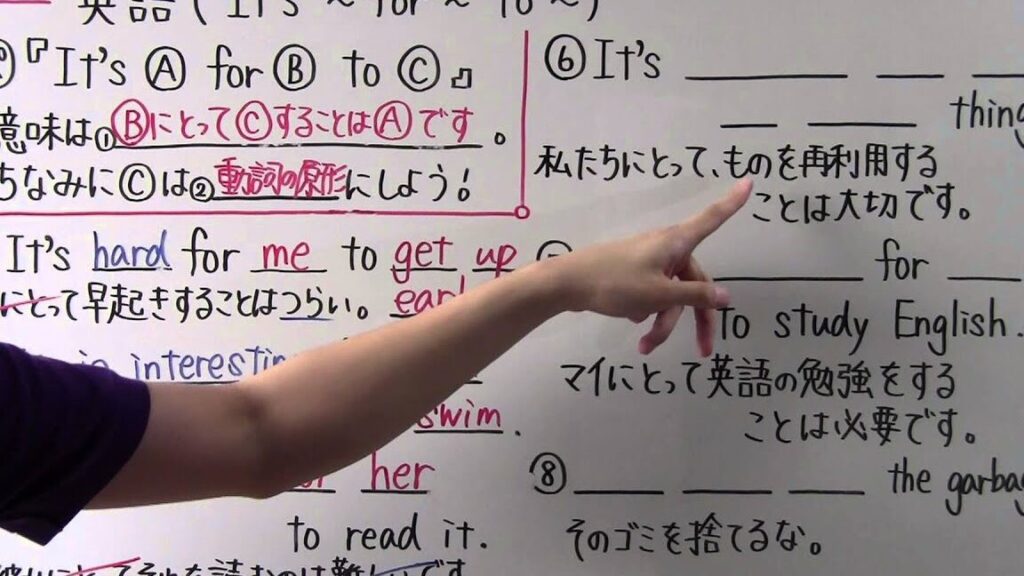 英語(It's ~ for ~ to ~)
『It's Ⓐ for Ⓑ to Ⓒ』
意味は①ⒷにとってⒸすることはⒶです。
ちなみにⒸは②動詞の原形にしよう!
It's hard for me to get up
にとって早起きすることはつらい。
interesting
swim.
her
to read it.
⑥It's
thing
私たちにとって、ものを再利用する
ことは大切です。
for
to study English.
マイにとって英語の勉強をする
ことは必要です。
⑧ the garbag
そのゴミを捨てるな。